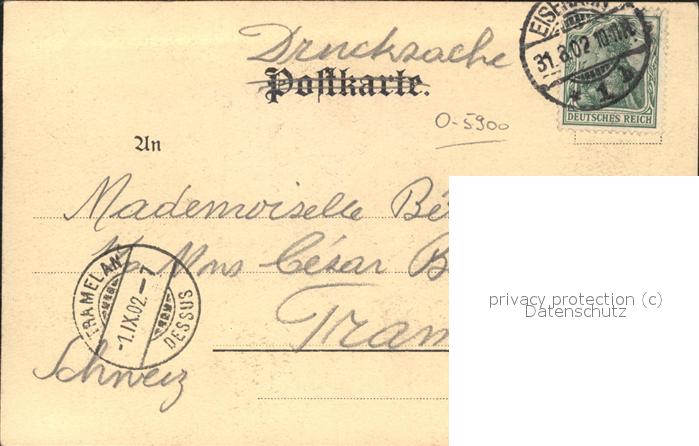 Drucksache
Postkarte.
EISENACH
31.8.02
* 1 b
DEUTSCHES REICH
O-5900
An
Mademoiselle Bé
Mons César B
Tram
TRAMELAN
-1.IX.02.-7
DESSUS
Schweiz
privacy protection (c)
Datenschutz